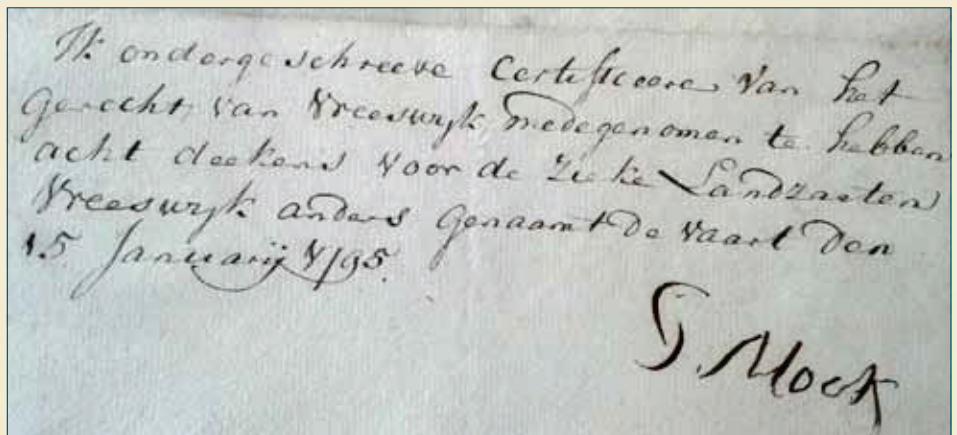 Ik ondergeschreeve Certificeere Van het
Gerecht van Vreeswyk medegenomen te hebben
acht deekens Voor de Zieke Landzaaten
Vreeswyk anders Genaamt De Vaart Den
15 Januarij 1795.
G. Mock